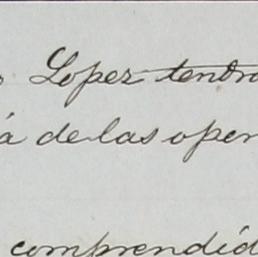 Lopez tendra
á de las open
comprendid